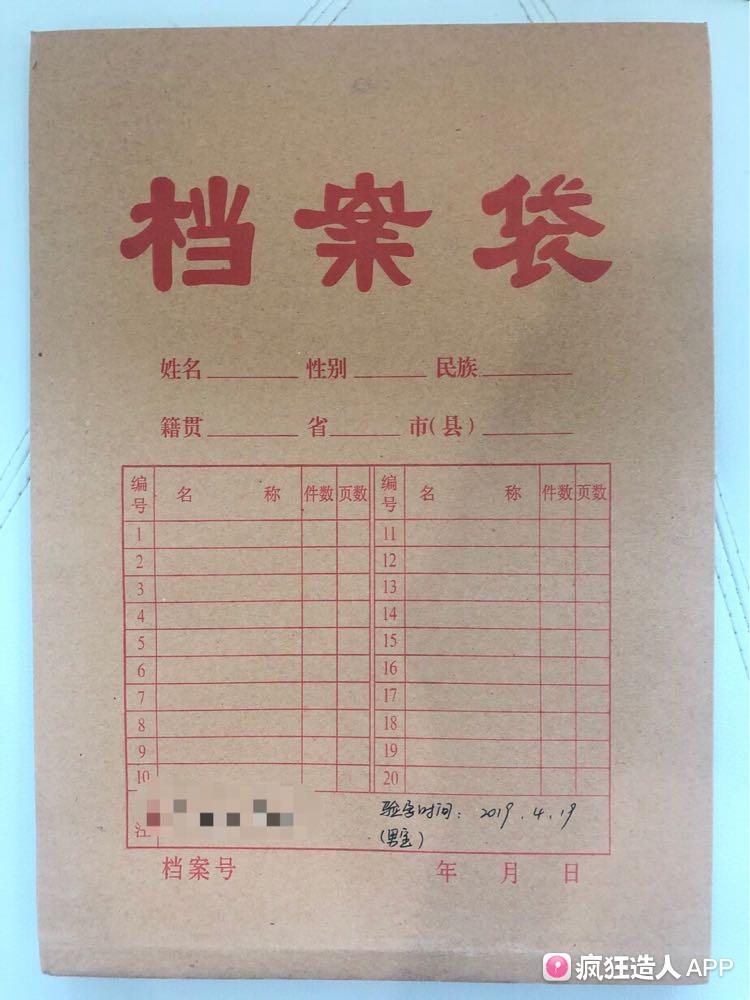 档案袋
姓名 性别 民族
籍贯 省 市(县)
编号 名 称 件数 页数 编号 名 称 件数 页数
1 11
2 12
3 13
4 14
5 15
6 16
7 17
8 18
9 19
10 20
注 验字时间: 2019.4.19
(男宝)
档案号 年 月 日
疯狂造人 APP